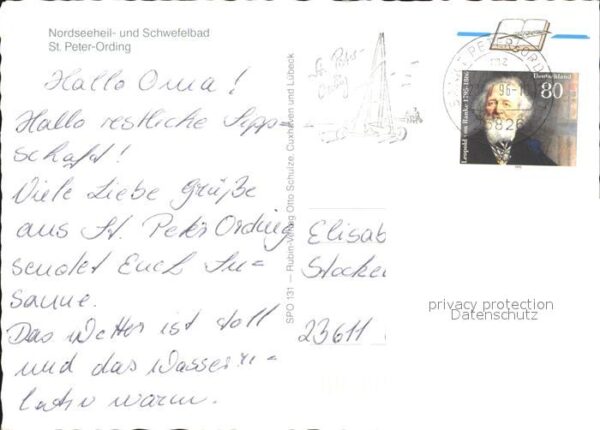 Nordseeheil- und Schwefelbad
St. Peter-Ording
Hallo Oma!
Hallo restliche Sipp-
schaft!
Viele Liebe Grüße
aus St. Peter Ording
sendet Euch Su-
sanne.
Das Wetter ist toll
und das Wasser re-
lativ warm.
SPO 131 — Rubin-Verlag Otto Schulze, Cuxhaven und Lübeck
St. Peter-
Ording
ST. PETER-ORD
96-1
5826
Deutschland
80
Leopold von Ranke 1795-1886
Elisab
Stocke
23611
privacy protection
Datenschutz